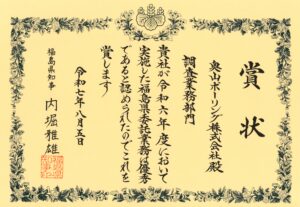 賞状
調査業務部門
奥山ボーリング株式会社殿
貴社が令和六年度において
実施した福島県委託業務は優秀
であると認められたのでこれを
賞します
令和七年八月五日
福島県知事 内堀雅雄